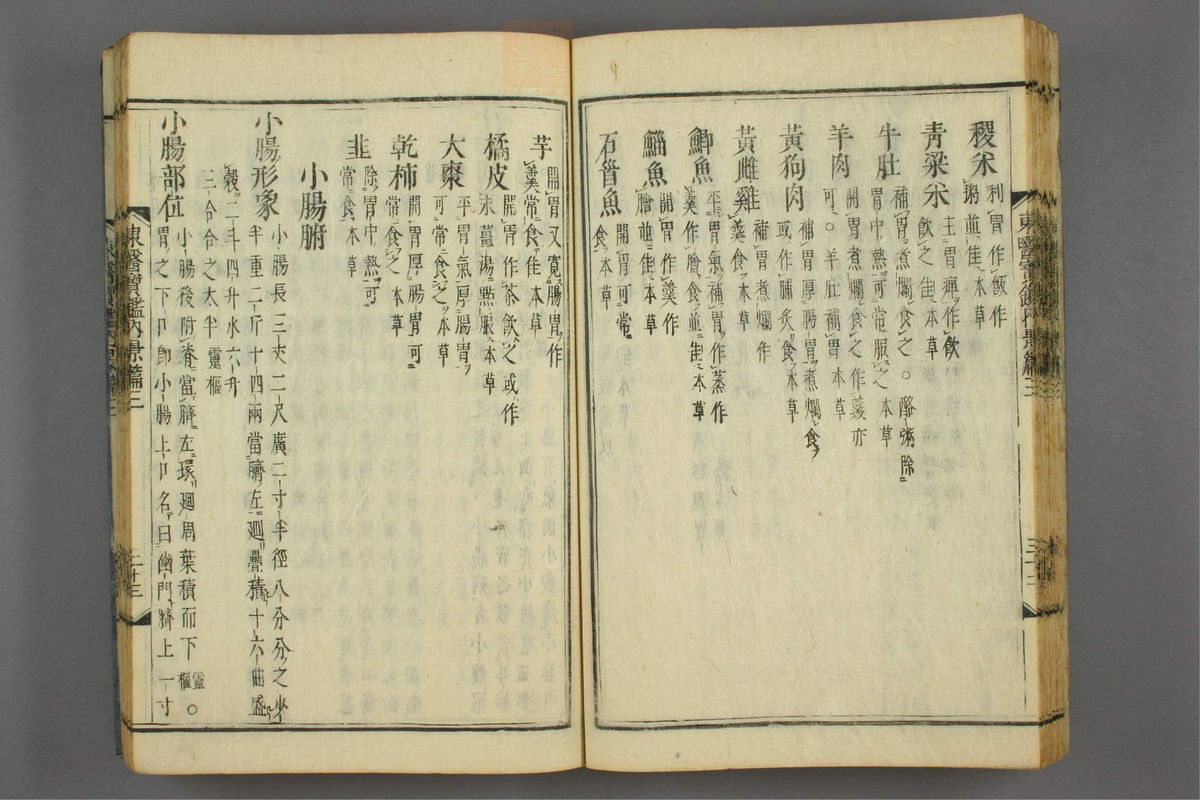 稷米
利胃作飯作
粥並佳本草
青粱米
主胃痺作飲
飲之佳本草
牛肚
補胃煮爛食之○酪粥除
胃中熱可常服之本草
羊肉
開胃煮爛食之作羹亦
可○羊肚補胃本草
黃狗肉
補胃厚腸胃煮爛食
或作脯炙食本草
黃雌雞
補胃煮爛作
羹食本草
鯽魚
平胃氣補胃作蒸作
羹作膾食並佳本草
鯔魚
開胃作羹作
膾並佳本草
石首魚
開胃可常
食本草
芋
開胃又寬腸胃作
羹常食佳本草
橘皮
開胃作茶飲之或作
末薑湯點服本草
大棗
平胃氣厚腸胃
可常食之本草
乾柿
開胃厚腸胃可
常食之本草
韭
除胃中熱可
常食本草
小腸腑
小腸形象
小腸長三丈二尺廣二寸半徑八分分之少
半重二斤十四兩當臍左廻疊積十六曲盛
穀二斗四升水六升
三合合之太半靈樞
小腸部位
小腸後附脊當臍左環廻周葉積而下靈樞○
胃之下口卽小腸上口名曰幽門臍上一寸
東醫寶鑑內景篇三
二十三